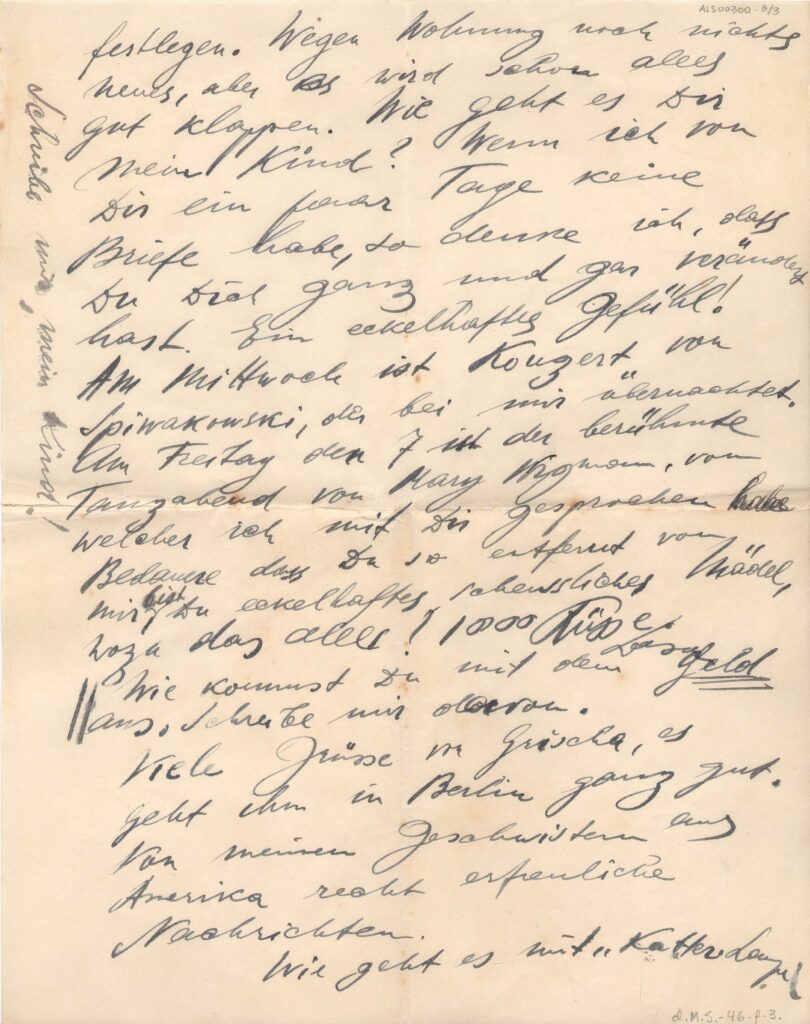 ALS00300-3/3
festlegen. Wegen Wohnung noch nichts
neues, aber es wird schon alles
gut klappen. Wie geht es Dir
mein Kind? Wenn ich von
Dir ein paar Tage keine
Briefe habe, so denke ich, dass
Du Dich ganz und gar verändert
hast. Ein eckelhaftes Gefühl!
Am Mittwoch ist Konzert von
Spiwakowski, der bei mir übernachtet.
Am Freitag den 7 ist der berühmte
Tanzabend von Mary Wigmann, von
welcher ich mit Dir gesprochen habe
Bedauere dass Du so entfernt von
mir bist Du eckelhaftes, scheussliches Mädel,
wozu das alles! 10000 Küsse.
Wie kommst Du mit dem Geld
aus, Schreibe mir davon.
Viele Grüsse von Grischa, es
geht ihm in Berlin ganz gut.
Von meinen Geschwistern aus
Amerika recht erfreuliche
Nachrichten.
Wie geht es mit "Katter
Schreibe mir, mein Kind!
d.M.S.-46-f.3.